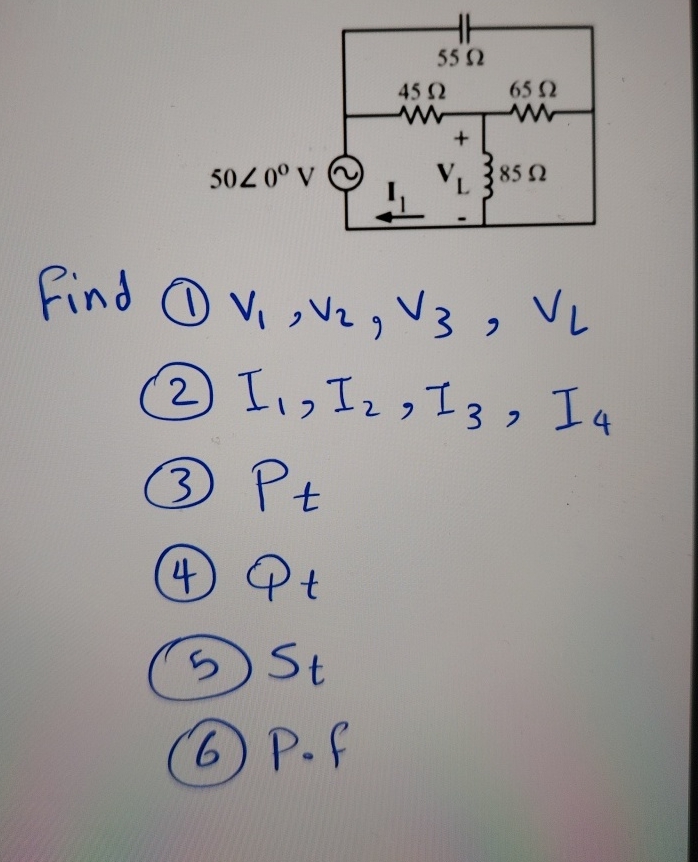 55 Ω
45 Ω 65 Ω
+
50∠0° V I₁ V_L 85 Ω
-
Find ① V₁, V₂, V₃, V_L
② I₁, I₂, I₃, I₄
③ Pt
④ Qt
⑤ St
⑥ P.f